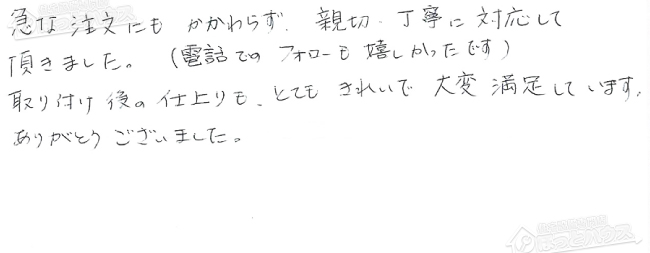 急な注文にもかかわらず、親切・丁寧に対応して
頂きました。(電話でのフォローも嬉しかったです)
取り付け後の仕上りも、とてもきれいで大変満足しています。
ありがとうございました。